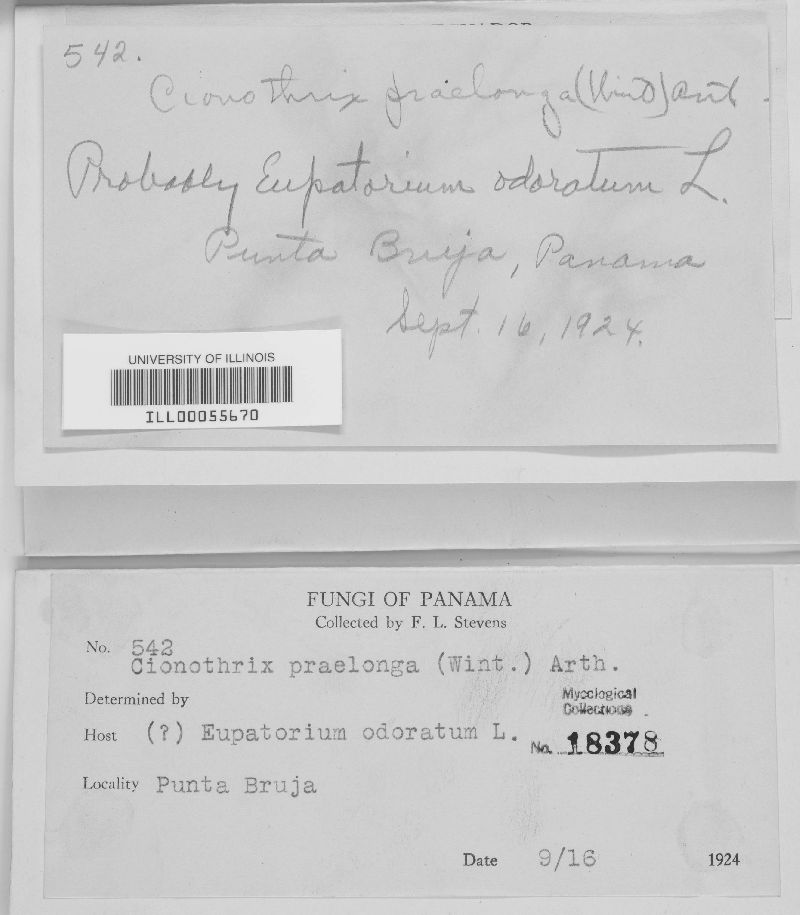 542.
Cionothrix praelonga (Wint) Arth.
Probably Eupatorium odoratum L.
Punta Bruja, Panama
Sept. 16, 1924.
UNIVERSITY OF ILLINOIS
ILL00055670
FUNGI OF PANAMA
Collected by F. L. Stevens
No. 542
Cionothrix praelonga (Wint.) Arth.
Determined by
Mycological
Collections
Host (?) Eupatorium odoratum L.
No. 18378
Locality Punta Bruja
Date 9/16 1924